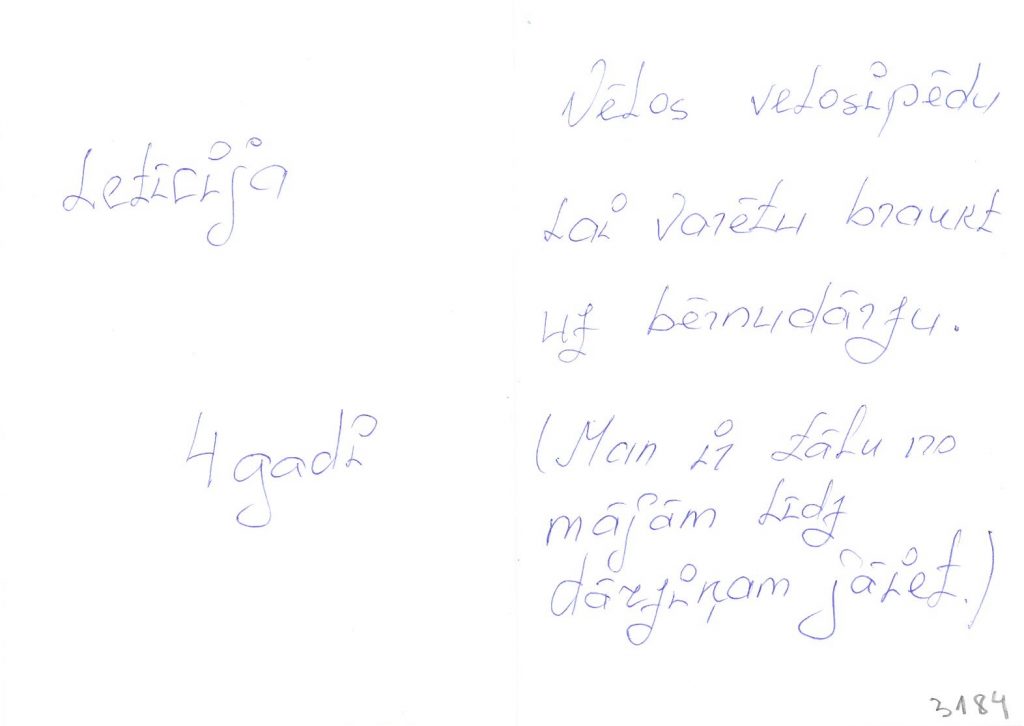 Letīcija
4 gadi
Vēlos velosipēdu
lai varētu braukt
uz bērnudārzu.
(Man ir tālu no
mājām līdz
dārziņam jāiet.)
3184